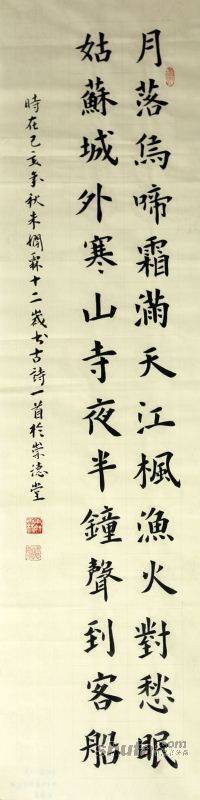 月落烏啼霜滿天江楓漁火對愁眠
姑蘇城外寒山寺夜半鐘聲到客船
時在己亥年秋朱嫺霖十二歲书古詩一首於崇德堂